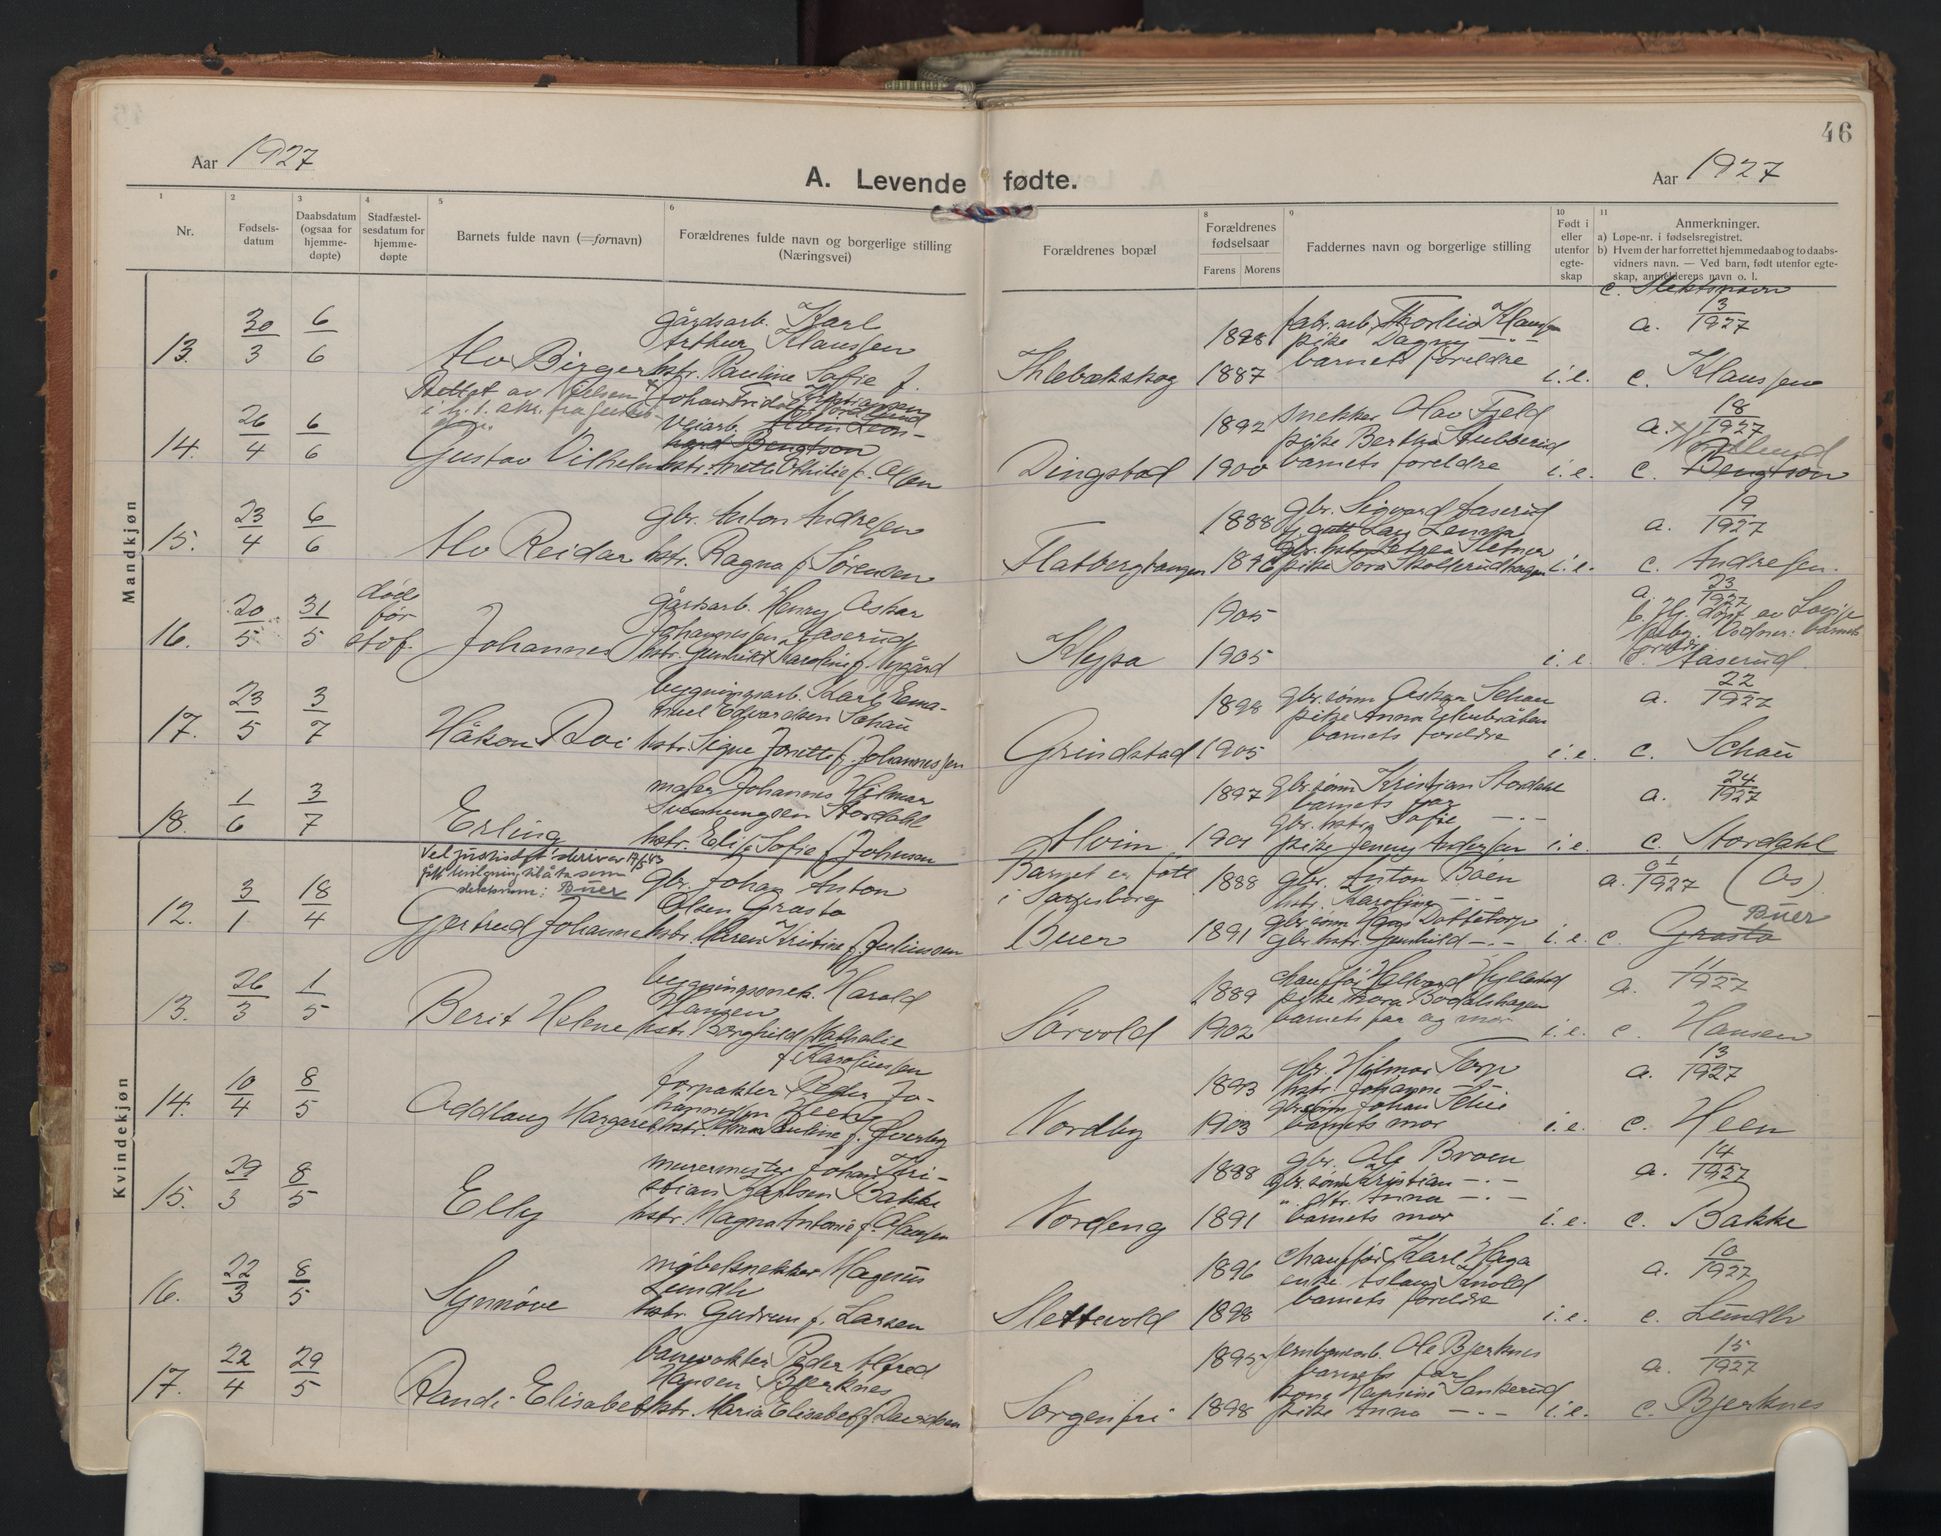 46
Aar 1927
A. Levende fødte.
Aar 1927
1 2 3 4 5 6 8 9 10 11
Nr.
Fødsels-
datum
Daabsdatum
(ogsaa for
hjemme-
døpte)
Stadfæstel-
sesdatum for
hjemme-
døpte
Barnets fulde navn (=fornavn)
Forældrenes fulde navn og borgerlige stilling
(Næringsvei)
Forældrenes bopæl
Forældrenes
fødselsaar
Farens Morens
Faddernes navn og borgerlige stilling
Født i
eller
utenfor
egte-
skap
Anmerkninger.
a) Løpe-nr. i fødselsregistret.
b) Hvem der har forrettet hjemmedaab og to daabs-
vidners navn. — Ved barn, født utenfor egte-
skap, anmelderens navn o. l.
c. Slektsnavn
Mandkjøn
13. 30/3 6/6 Alv Birger
gårdsarb. Karl
Arthur Klaussen
hstr. Pauline Sofie f.
Nilsen
Thlebækskog 1898 1887
fabr. arb. Thorleiv Klaussen
pike Dagny —"—
barnets foreldre
i.e. a. 3/1927
c. Klaussen
14. 26/4 6/6 Gustav Vilhelm
Johan Fridolf
veiarb. Alben Leon-
hard Bengtson
hstr. Anette Othilie f. Olsen
Dingstad 1892 1900
snekker Olav Fjeld
pike Bertha Stubberud
barnets foreldre
i.e. a. x 18/1927
Nordlund
c. Bengtson
15. 23/4 6/6 Alv Reidar
gbr. Anton Andresen
hstr. Ragna f. Sørensen
Flatbergtangen 1888
gbr. Sigvard Aaserud
pike Tora Skollerudhagen
i.e. a. 19/1927
c. Andresen.
16. 20/5 31/5 død
før
stdf. Johannes
gårdsarb. Henry Oskar
Johannessen Aaserud
hstr. Gunhild Karoline f. Nygård
Kleppa 1905 1905
i.e. a. 23/1927
b. Hj. døpt av Lovise
Næby. Vidner: barnets
foreldre
c. Aaserud.
17. 23/5 3/7 Håkon Roi
bygningsarb. Karl Ema-
nuel Edvardsen Schau
hstr. Signe Jonette f. Johannessen
Grindstad 1898 1905
gbr. sønn Oskar Schau
pike Anna
barnets foreldre
i.e. a. 22/1927
c. Schau
18. 1/6 3/7 Erling
maler Johannes Hilmar
Svenningsen Stordahl
hstr. Elise Sofie f. Johnsen
Alvim 1897 1901
gbr. sønn Kristian Stordahl
barnets far
gbr. hstr. Sofie —"—
pike Jenny Andersen
i.e. a. 24/1927
c. Stordahl
Kvindekjøn
12. 3/1 18/4 Ved justisdpt. skriver 19/5 43
gitt bevilgning til å ta som
slektsnavn: Buer
Gjertrud Johanne
gbr. Johan Anton
Olsen Grasto
hstr. Maren Kristine f. Juliussen
Barnet er født
i Sarpsborg
Buer 1888 1891
gbr. Anton Båen
hstr. Karoline —"—
gbr. sønn Hans Dattetorp
gbr. hstr. Gunhild —"—
i.e. a. 1927 (Os)
Buer
c. Grasto
13. 26/3 1/5 Berit Helene
bygningssnek. Harald
Hansen
hstr. Borghild Nathalie
f. Karolinssen
Sørvold 1889 1902
chauffør Halvard Hyllestad
pike Thora Bodalshagen
barnets far og mor
i.e. a. 11/1927
c. Hansen
14. 10/4 8/5 Oddlaug Margaret
forpakter Peder Jo-
hannessen Heen
hstr. Anna Pauline f. Øverby
Nordby 1893 1903
gbr. Hjelmar Torp
hstr. Johanne —"—
gbr. sønn Johan Schie
barnets mor
i.e. a. 13/1927
c. Heen
15. 29/3 8/5 Elly
murermester Johan Kri-
stian Karlsen Bakke
hstr. Magna Antonie f. Olaussen
Nordeng 1888 1891
gbr. Ole Broen
gbr. sønn Kristian —"—
" dtr. Anna —"—
barnets mor
i.e. a. 14/1927
c. Bakke
16. 22/3 8/5 Synnøve
møbelsnekker Magnus
Lundh
hstr. Gudrun f. Larsen
Slettevold 1896 1898
chauffør Karl Haga
enke Aslaug Knold
barnets foreldre
i.e. a. 10/1927
c. Lundh
17. 22/4 29/5 Randi Elisabet
banevokter Peder Alfred
Hansen Bjerknes
hstr. Maria Elisabet f. Davidsen
Sorgenfri 1895 1898
jernbanearb. Ole Bjerknes
barnets far
kone Hansine Sankerud
pike Anna —"—
i.e. a. 15/1927
c. Bjerknes